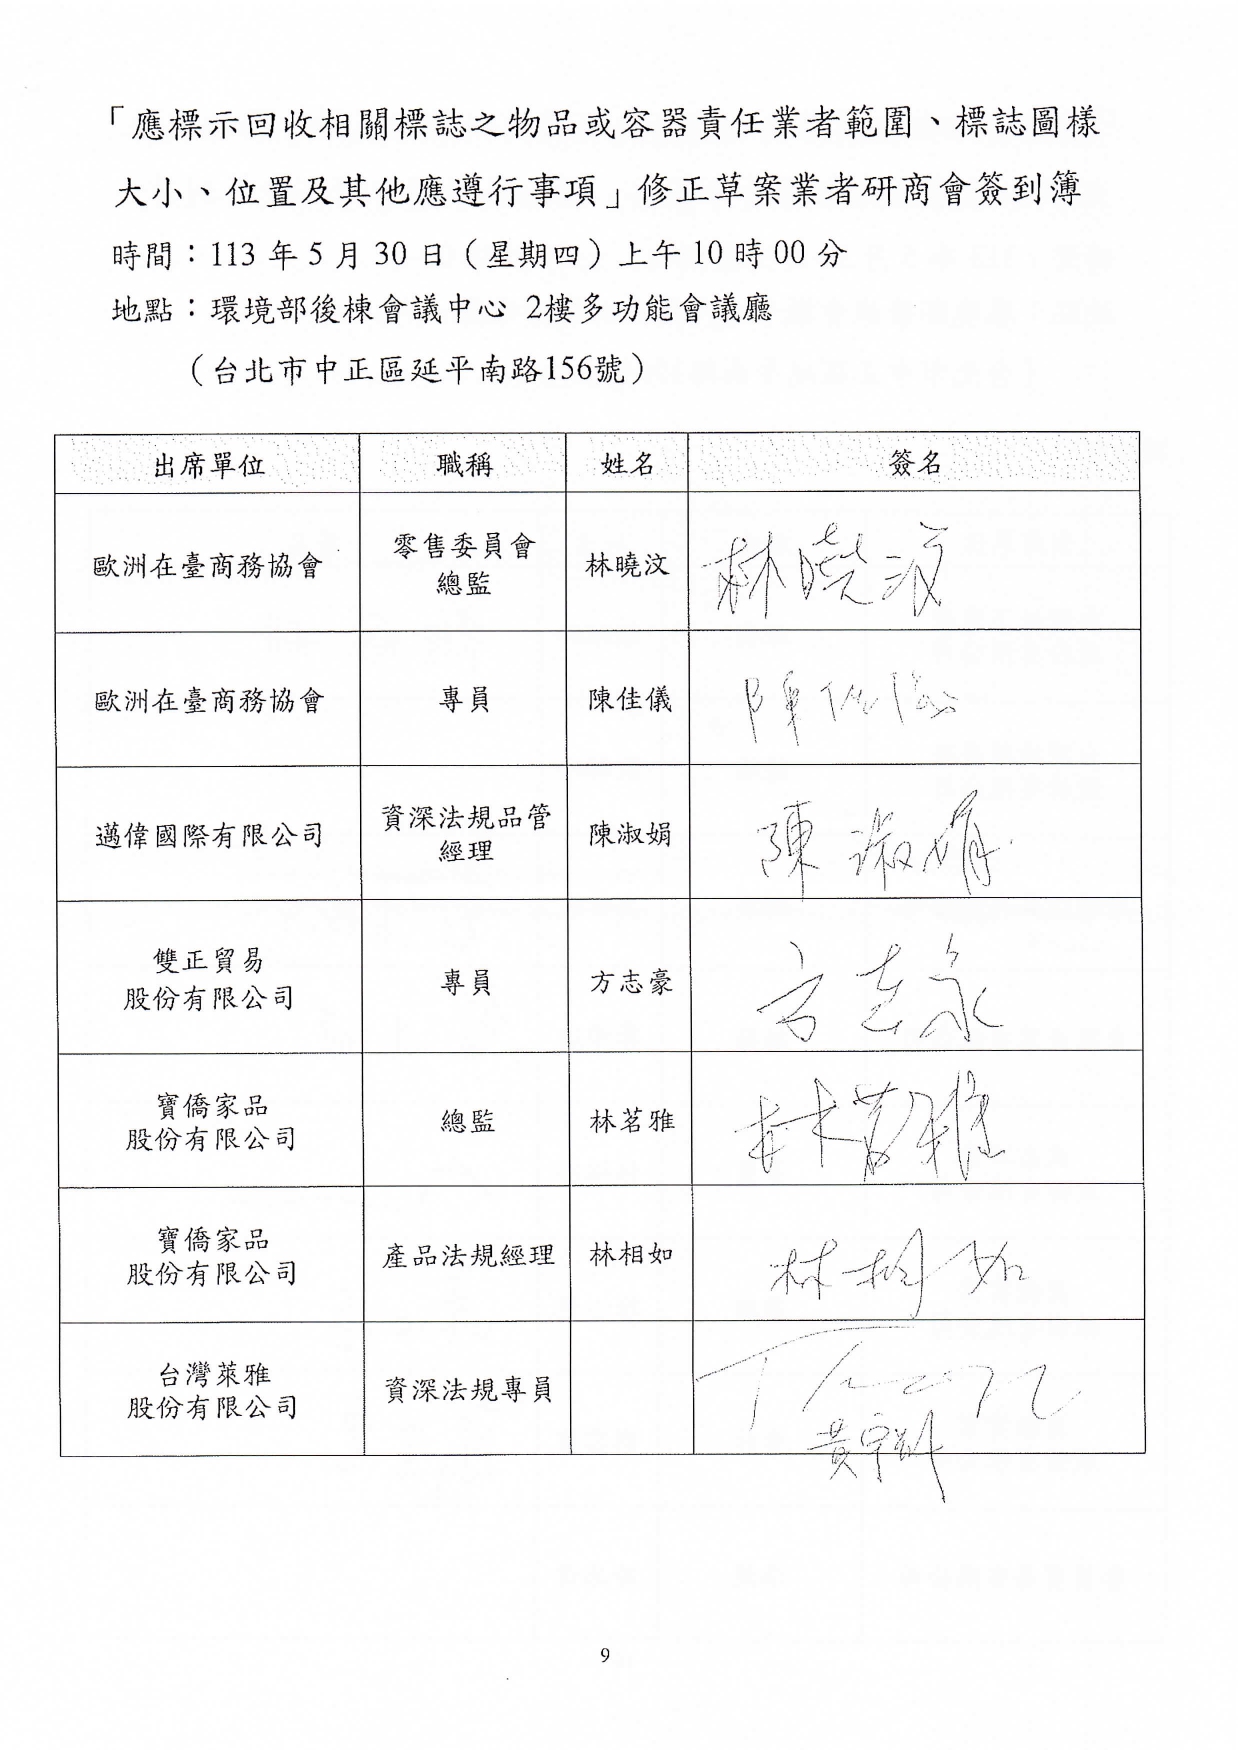 「應標示回收相關標誌之物品或容器責任業者範圍、標誌圖樣
大小、位置及其他應遵行事項」修正草案業者研商會簽到簿
時間：113 年 5 月 30 日（星期四）上午 10 時 00 分
地點：環境部後棟會議中心 2樓多功能會議廳
（台北市中正區延平南路156號）
出席單位 職稱 姓名 簽名
歐洲在臺商務協會 零售委員會
總監 林曉汶 林曉汶
歐洲在臺商務協會 專員 陳佳儀 陳佳儀
邁偉國際有限公司 資深法規品管
經理 陳淑娟 陳淑娟
雙正貿易
股份有限公司 專員 方志豪 方志豪
寶僑家品
股份有限公司 總監 林茗雅 林茗雅
寶僑家品
股份有限公司 產品法規經理 林相如 林相如
台灣萊雅
股份有限公司 資深法規專員
9